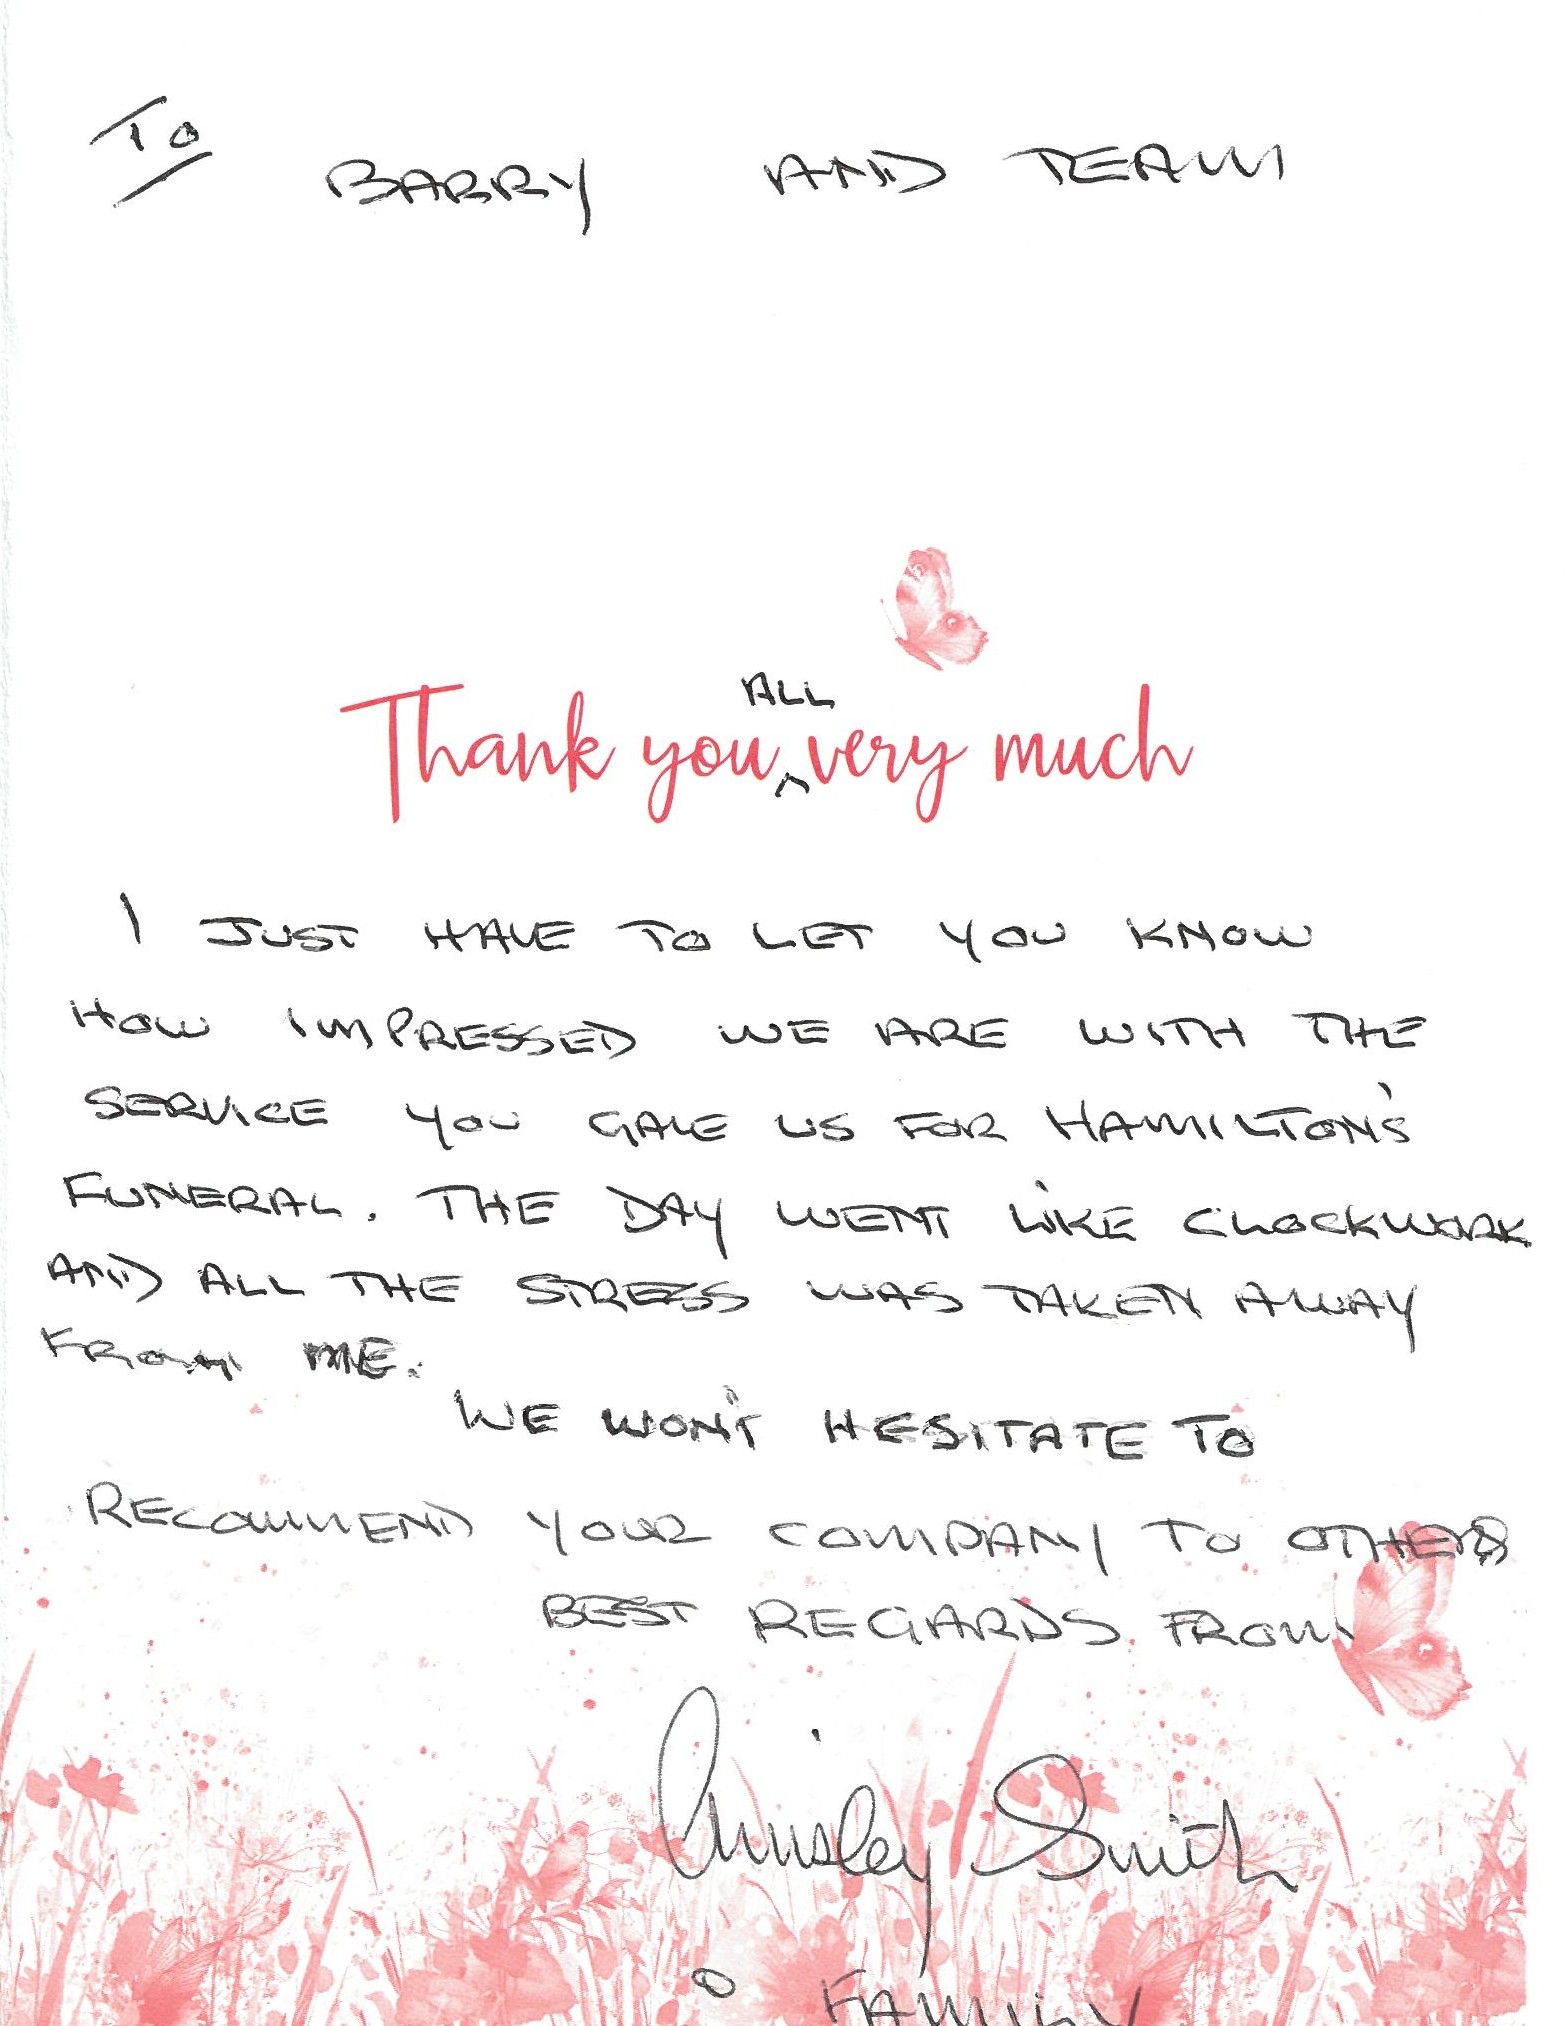 To
BARRY AND TEAM
ALL
Thank you ^ very much
I JUST HAVE TO LET YOU KNOW
HOW IMPRESSED WE ARE WITH THE
SERVICE YOU GAVE US FOR HAMILTON'S
FUNERAL. THE DAY WENT LIKE CLOCKWORK
AND ALL THE STRESS WAS TAKEN AWAY
FROM ME.
WE WON'T HESITATE TO
RECOMMEND YOUR COMPANY TO OTHERS
BEST REGARDS FROM
Ainsley Smith
FAMILY